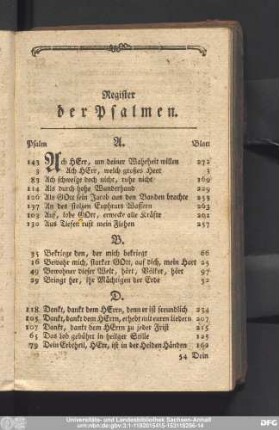 Register
der Psalmen.
Psalm A. Blatt
143 Ach HErr, um deiner Wahrheit willen 272
3 Ach HErr, welch großes Heer
83 Ach schweige doch nicht, ruhe nicht 169
114 Als durch hohe Wunderhand 229
126 Als GOtt sein Jacob aus den Banden brachte 253
137 An des stolzen Euphrats Wassern 263
103 Auf, lobe GOtt, erwecke alle Kräfte 202
130 Aus Tiefen ruft mein Flehen 257
B.
35 Bekriege den, der mich bekriegt 66
16 Bewahr mich, starker GOtt, auf dich, mein Hort 25
49 Bewohner dieser Welt, hört, Völker, hört 97
29 Bringt her, ihr Mächtigen der Erde 52
D.
118 Dankt, dankt dem HErrn, denn er ist freundlich 234
105 Dankt, dankt dem HErrn, erhebt mit euren liedern 207
107 Dankt, dankt dem HErrn zu jeder Frist 215
65 Das lob gebührt in heilger Stille 125
79 Dein Erbtheil, HErr, ist in der Heiden Händen 160
54 Dein
Universitäts- und Landesbibliothek Sachsen-Anhalt